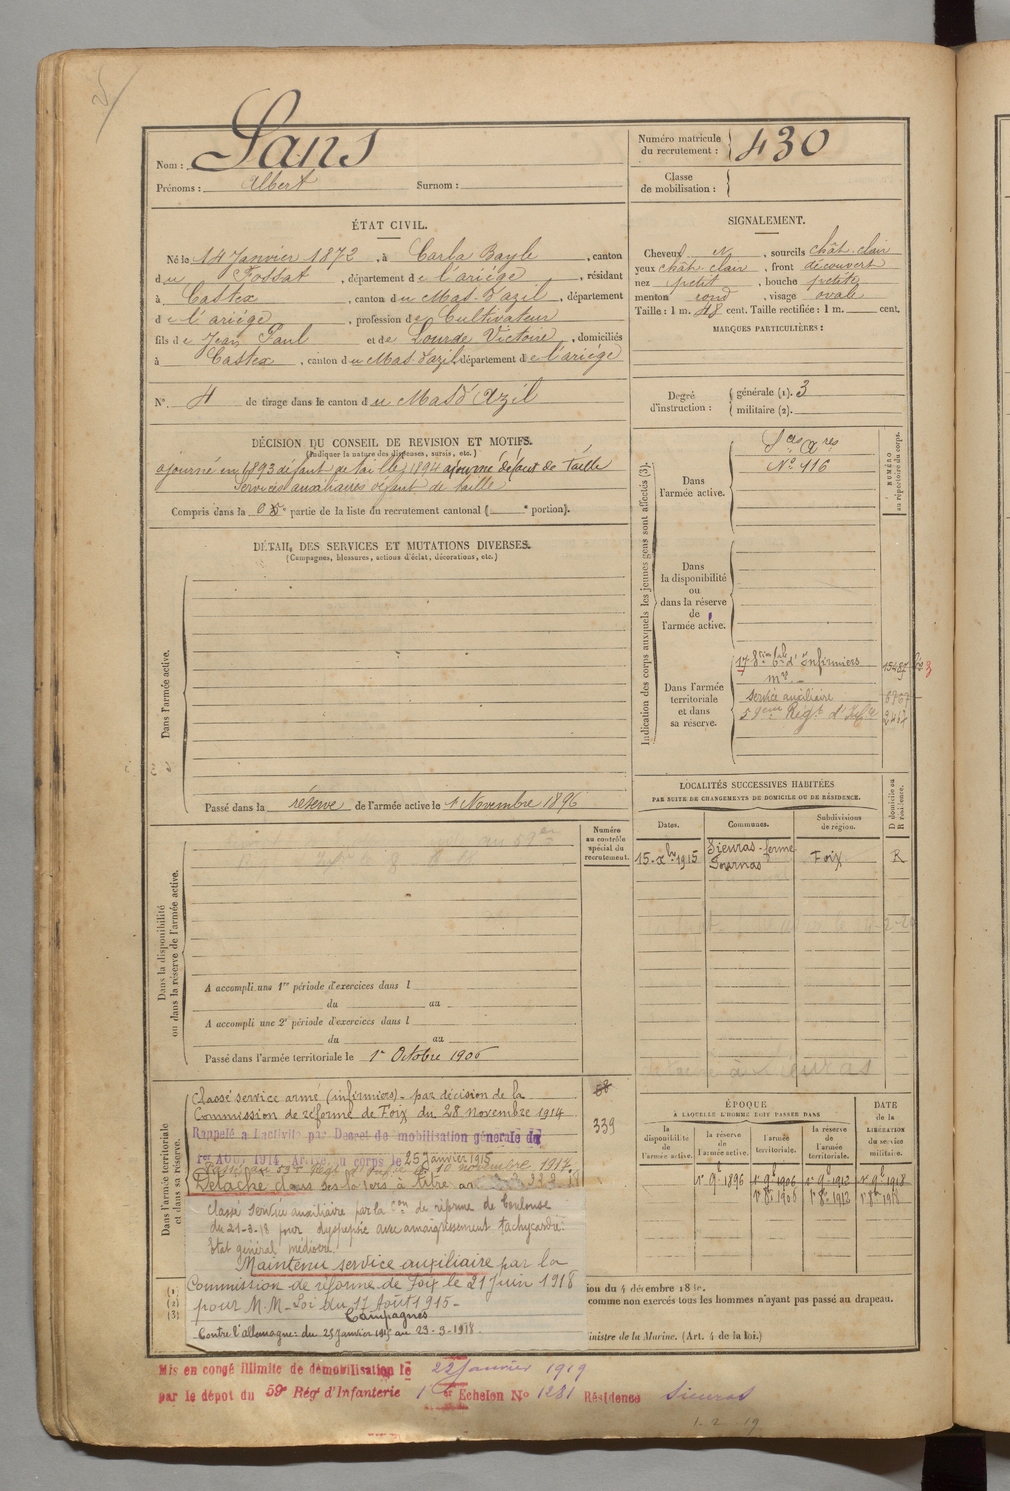 Nom : Sans
Prénoms : Albert Surnom :
Numéro matricule du recrutement : 430
Classe de mobilisation :
ÉTAT CIVIL.
Né le 14 Janvier 1872, à Carla Bayle, canton
du Fossat, département de l'ariége, résidant
à Castex, canton du Mas-d'azil, département
de l'ariége, profession de Cultivateur
fils de Jean Paul et de Lourde Victoire, domiciliés
à Castex, canton du Mas d'azil, département de l'ariége
N° 4 de tirage dans le canton du Mas d'Azil
SIGNALEMENT.
Cheveux N, sourcils chât. clair
yeux chât. clair, front découvert
nez petit, bouche petite
menton rond, visage ovale
Taille : 1 m. 48 cent. Taille rectifiée : 1 m. cent.
MARQUES PARTICULIÈRES :
Degré d'instruction : générale (1). 3
militaire (2).
DÉCISION DU CONSEIL DE REVISION ET MOTIFS.
(Indiquer la nature des dispenses, sursis, etc.)
ajourné en 1893 défaut de taille, 1894 ajourné défaut de taille
Services auxiliaires défaut de taille
Compris dans la partie de la liste du recrutement cantonal ( portion).
DÉTAIL DES SERVICES ET MUTATIONS DIVERSES.
(Campagnes, blessures, actions d'éclat, décorations, etc.)
Dans l'armée active.
Passé dans la réserve de l'armée active le 1 Novembre 1896
Indication des corps auxquels les jeunes gens sont affectés (3).
NUMÉRO au répertoire du corps.
Dans l'armée active.
Sces Ares
N° 116
Dans la disponibilité ou dans la réserve de l'armée active.
Dans l'armée territoriale et dans sa réserve.
d'Infirmiers
service auxiliaire
59eme Régt d'Infie
LOCALITÉS SUCCESSIVES HABITÉES
PAR SUITE DE CHANGEMENTS DE DOMICILE OU DE RÉSIDENCE.
D domicile ou R résidence.
Dates. Communes. Subdivisions de région.
15-Xbre 1915 Sieuras-ferme Tournas Foix R
Dans la disponibilité ou dans la réserve de l'armée active.
Numéro au contrôle spécial du recrutement.
A accompli une 1re période d'exercices dans l
du au
A accompli une 2e période d'exercices dans l
du au
Passé dans l'armée territoriale le 1er Octobre 1906
Dans l'armée territoriale et dans sa réserve.
58
339
Classé service armé (infirmiers) par décision de la
Commission de réforme de Foix du 28 novembre 1914
Rappelé à l'activité par Décret de mobilisation générale du
1er Août 1914 Arrivé au corps le 25 Janvier 1915
Passé au 59e Régt d'Infie le 10 novembre 1917
Détaché dans ses foyers à titre
Classé service auxiliaire par la con de réforme de Toulouse
du 21-3-18 pour dyspepsie avec amaigrissement tachycardie.
Etat général médiocre.
Maintenu service auxiliaire par la
Commission de réforme de Foix le 21 Juin 1918
pour M.M- Loi du 17 Août 1915-
Campagnes
Contre l'allemagne: du 25 Janvier 1915 au 23-3-1918.
ÉPOQUE
À LAQUELLE L'HOMME DOIT PASSER DANS
DATE de la LIBÉRATION du service militaire.
la disponibilité de l'armée active.
la réserve de l'armée active.
l'armée territoriale.
la réserve de l'armée territoriale.
1er 9bre 1896 1er 9bre 1906 1er 9bre 1912 1er 9bre 1918
1er 8bre 1906 1er 8bre 1912 1er 8bre 1918
(1)
(2)
(3)
ion du 4 décembre 18
comme non exercés tous les hommes n'ayant pas passé au drapeau.
inistre de la Marine. (Art. 4 de la loi.)
Mis en congé illimité de démobilisation le 22 Janvier 1919
par le dépôt du 59e Rég. d'Infanterie 1er Echelon N° 1281 Résidence Sieuras
1. 2 19